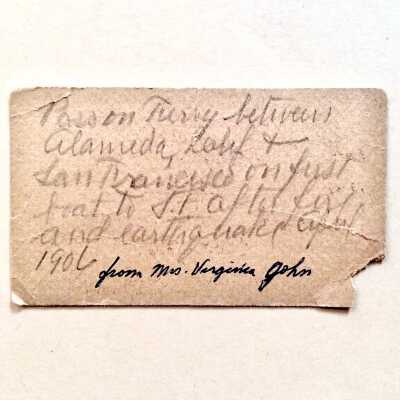 Pass on Ferry between
Alameda, Calif &
San Francisco on first
boat to S.F. after fire
and earthquake April
1906
from Mrs. Virginia John